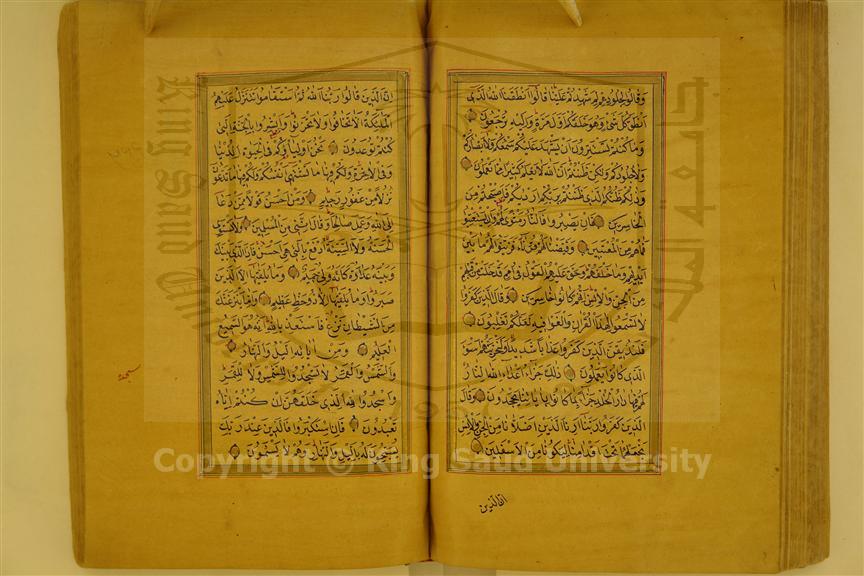 وقالوا لجلودهم لم شهدتم علينا قالوا انطقنا الله الذى
انطق كل شىء وهو خلقكم اول مرة واليه ترجعون
وما كنتم تستترون ان يشهد عليكم سمعكم ولا ابصاركم
ولا جلودكم ولكن ظننتم ان الله لا يعلم كثيرا مما تعملون
وذلكم ظنكم الذى ظننتم بربكم ارديكم فاصبحتم من
الخاسرين فان يصبروا فالنار مثوى لهم وان يستعتبوا
فما هم من المعتبين وقيضنا لهم قرناء فزينوا لهم ما بين
ايديهم وما خلفهم وحق عليهم القول فى امم قد خلت من قبلهم
من الجن والانس انهم كانوا خاسرين وقال الذين كفروا
لا تسمعوا لهذا القران والغوا فيه لعلكم تغلبون
فلنذيقن الذين كفروا عذابا شديدا ولنجزينهم اسوا
الذى كانوا يعملون ذلك جزاء اعداء الله النار
لهم فيها دار الخلد جزاء بما كانوا باياتنا يجحدون وقال
الذين كفروا ربنا ارنا الذين اضلانا من الجن والانس
نجعلهما تحت اقدامنا ليكونا من الاسفلين
ان الذين
ان الذين قالوا ربنا الله ثم استقاموا تتنزل عليهم
الملئكة الا تخافوا ولا تحزنوا وابشروا بالجنة التى
كنتم توعدون نحن اولياؤكم فى الحيوة الدنيا
وفى الاخرة ولكم فيها ما تشتهى انفسكم ولكم فيها ما تدعون
نزلا من غفور رحيم ومن احسن قولا ممن دعا
الى الله وعمل صالحا وقال اننى من المسلمين ولا تستوى
الحسنة ولا السيئة ادفع بالتى هى احسن فاذا الذى بينك
وبينه عداوة كانه ولى حميم وما يلقيها الا الذين
صبروا وما يلقيها الا ذو حظ عظيم واما ينزغنك
من الشيطان نزغ فاستعذ بالله انه هو السميع
العليم ومن اياته اليل والنهار
والشمس والقمر لا تسجدوا للشمس ولا للقمر
واسجدوا لله الذى خلقهن ان كنتم اياه
تعبدون فان استكبروا فالذين عند ربك
يسبحون له باليل والنهار وهم لا يسئمون
سجدة
جامعة الملك سعود
King Saud University
1957
Copyright © King Saud University